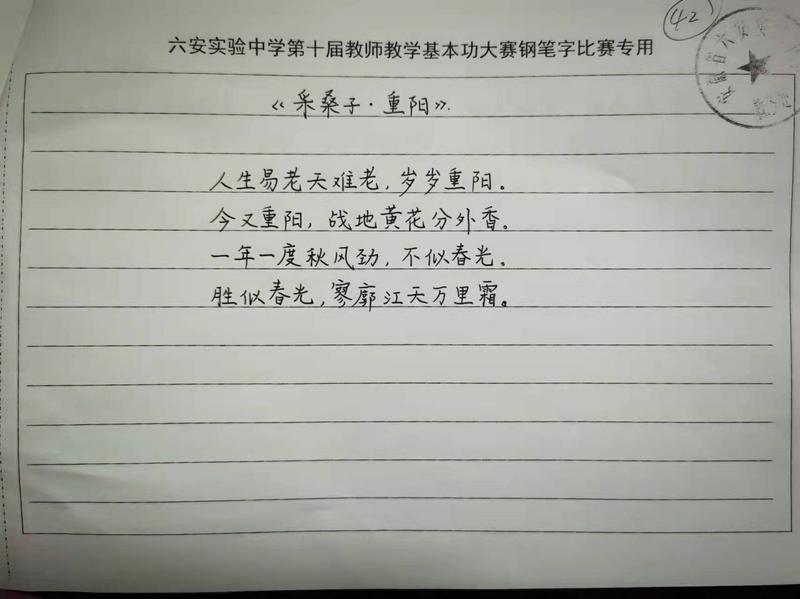 42
六安实验中学第十届教师教学基本功大赛钢笔字比赛专用
《采桑子·重阳》.
人生易老天难老,岁岁重阳。
今又重阳,战地黄花分外香。
一年一度秋风劲,不似春光。
胜似春光,寥廓江天万里霜。